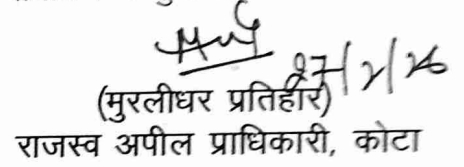 27/2/26
(मुरलीधर प्रतिहार)
राजस्व अपील प्राधिकारी, कोटा